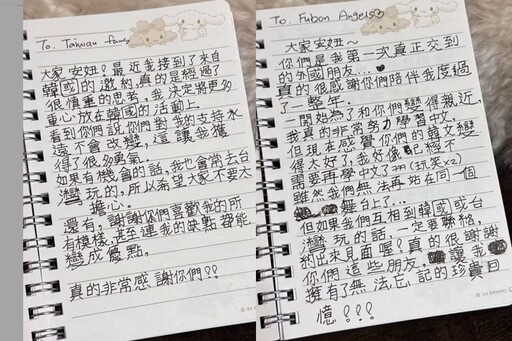 To. Taiwan fans
大家安妞？最近我接到了來自
韓國的邀約，真的是經過了
很慎重的思考，我決定將更多
重心放在韓國的活動上。
看到你們說你們對我的支持永
遠不會改變，這讓我獲
得了很多勇氣。
如果有機會的話，我也會常去台
灣玩的，所以希望大家不要太
擔心。
還有，謝謝你們喜歡我的所
有模樣，甚至連我的缺點都能
變成優點。
真的非常感謝你們??
To. Fubon Angels
大家安妞~
你們是我第一次真正交到
的外國朋友...
真的很感謝你們陪伴我度過
了一整年。
一開始為了和你們變得親近，
我真的非常努力學習中文，
但現在感覺你們的韓文變
得太好了，我好像已經不
需要再學中文了ㅋㅋ(玩笑x2)
雖然我們無法再站在同一個
舞台上了...
但如果我們互相到韓國或台
灣玩的話，一定要聯絡，
約出來見面喔？真的很謝謝
你們這些朋友，讓我
擁有了無法忘記的珍貴回
憶!???